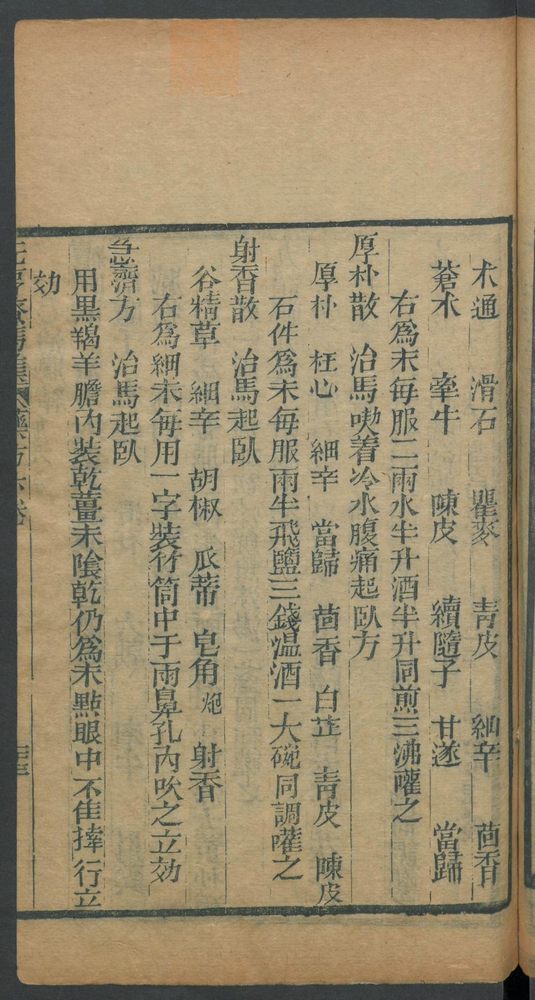 木通　滑石　瞿麥　青皮　細辛　茴香
蒼朮　牽牛　陳皮　續隨子　甘遂　當歸
右爲末每服二兩水半升酒半升同煎三沸嚾之
厚朴散　治馬喫着冷水腹痛起臥方
厚朴　桂心　細辛　當歸　茴香　白芷　青皮　陳皮
石件爲末每服兩半飛鹽三錢温酒一大碗同調嚾之
射香散　治馬起臥
谷精草　細辛　胡椒　瓜蒂　皂角炮　射香
右爲細末每用一字裝竹筒中于兩鼻孔內吹之立効
急濟方　治馬起臥
用黒羯羊膽內裝乾薑末陰乾仍爲末點眼中不隹捧行立
効